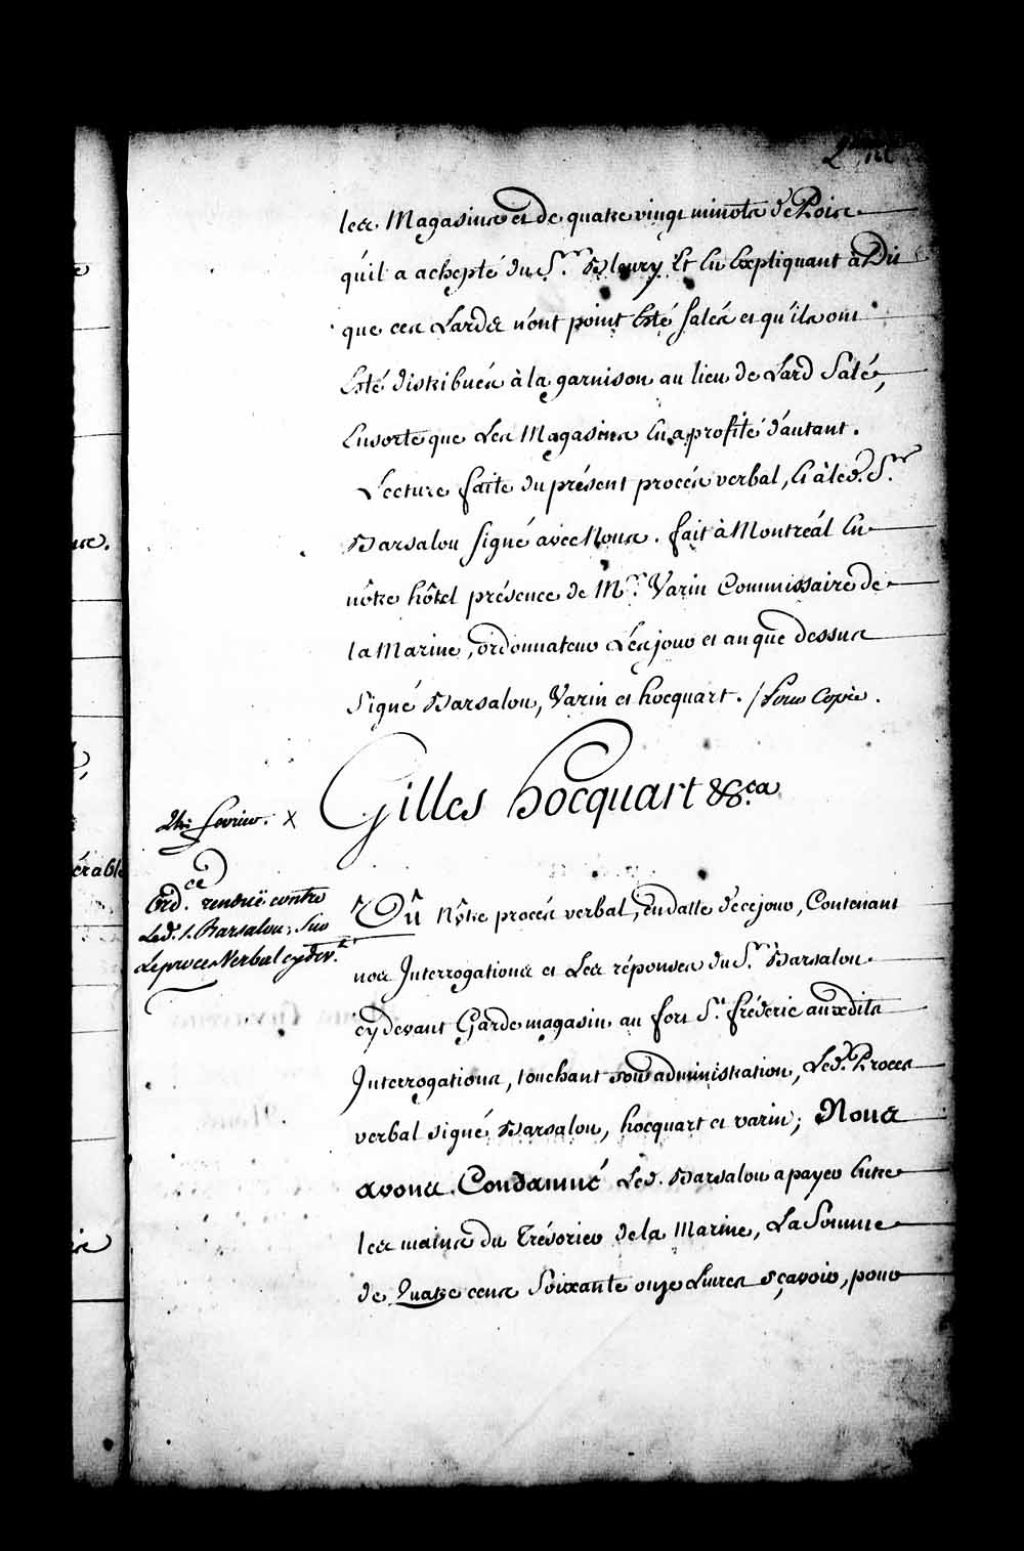 les Magasins et de quatre vingt minots de Pois
qu'il a achepté du S.r Fleury Et En Expliquant à Dit
que ces Lards n'ont point Esté salés et qu'ils ont
Esté distribués à la garnison au lieu de Lard Salé,
Ensorte que Les Magasins En a profité d'autant.
Lecture faite du présent procés verbal, Et à led. S.r
Barsalou signé avec Nous. fait à Montreál En
nôtre hôtel présence de M.r Varin Commissaire de
la Marine, ordonnateur Les jour et an que dessus
Signé Barsalou, Varin et hocquart. / Pour Copie.
Gilles hocquart &c.a
24e fevrier. X
Ord.ce renduë contre
Led. S. Barsalou, Sur
Le proces Verbal cy der.t
Vû Nôtre procés verbal, en datte de ce jour, Contenant
nos Interrogations et Les réponses du S.r Barsalou
cy devant Garde magasin au fort S.t fréderic auxdits
Interrogations, touchant son administration, Led. Proces
verbal signé Barsalou, hocquart et varin; Nous
avons Condamné Led. Barsalou a payer Entre
les mains du Trésorier de la Marine, La Somme
de Quatre cens Soixante onze Livres sçavoir, pour